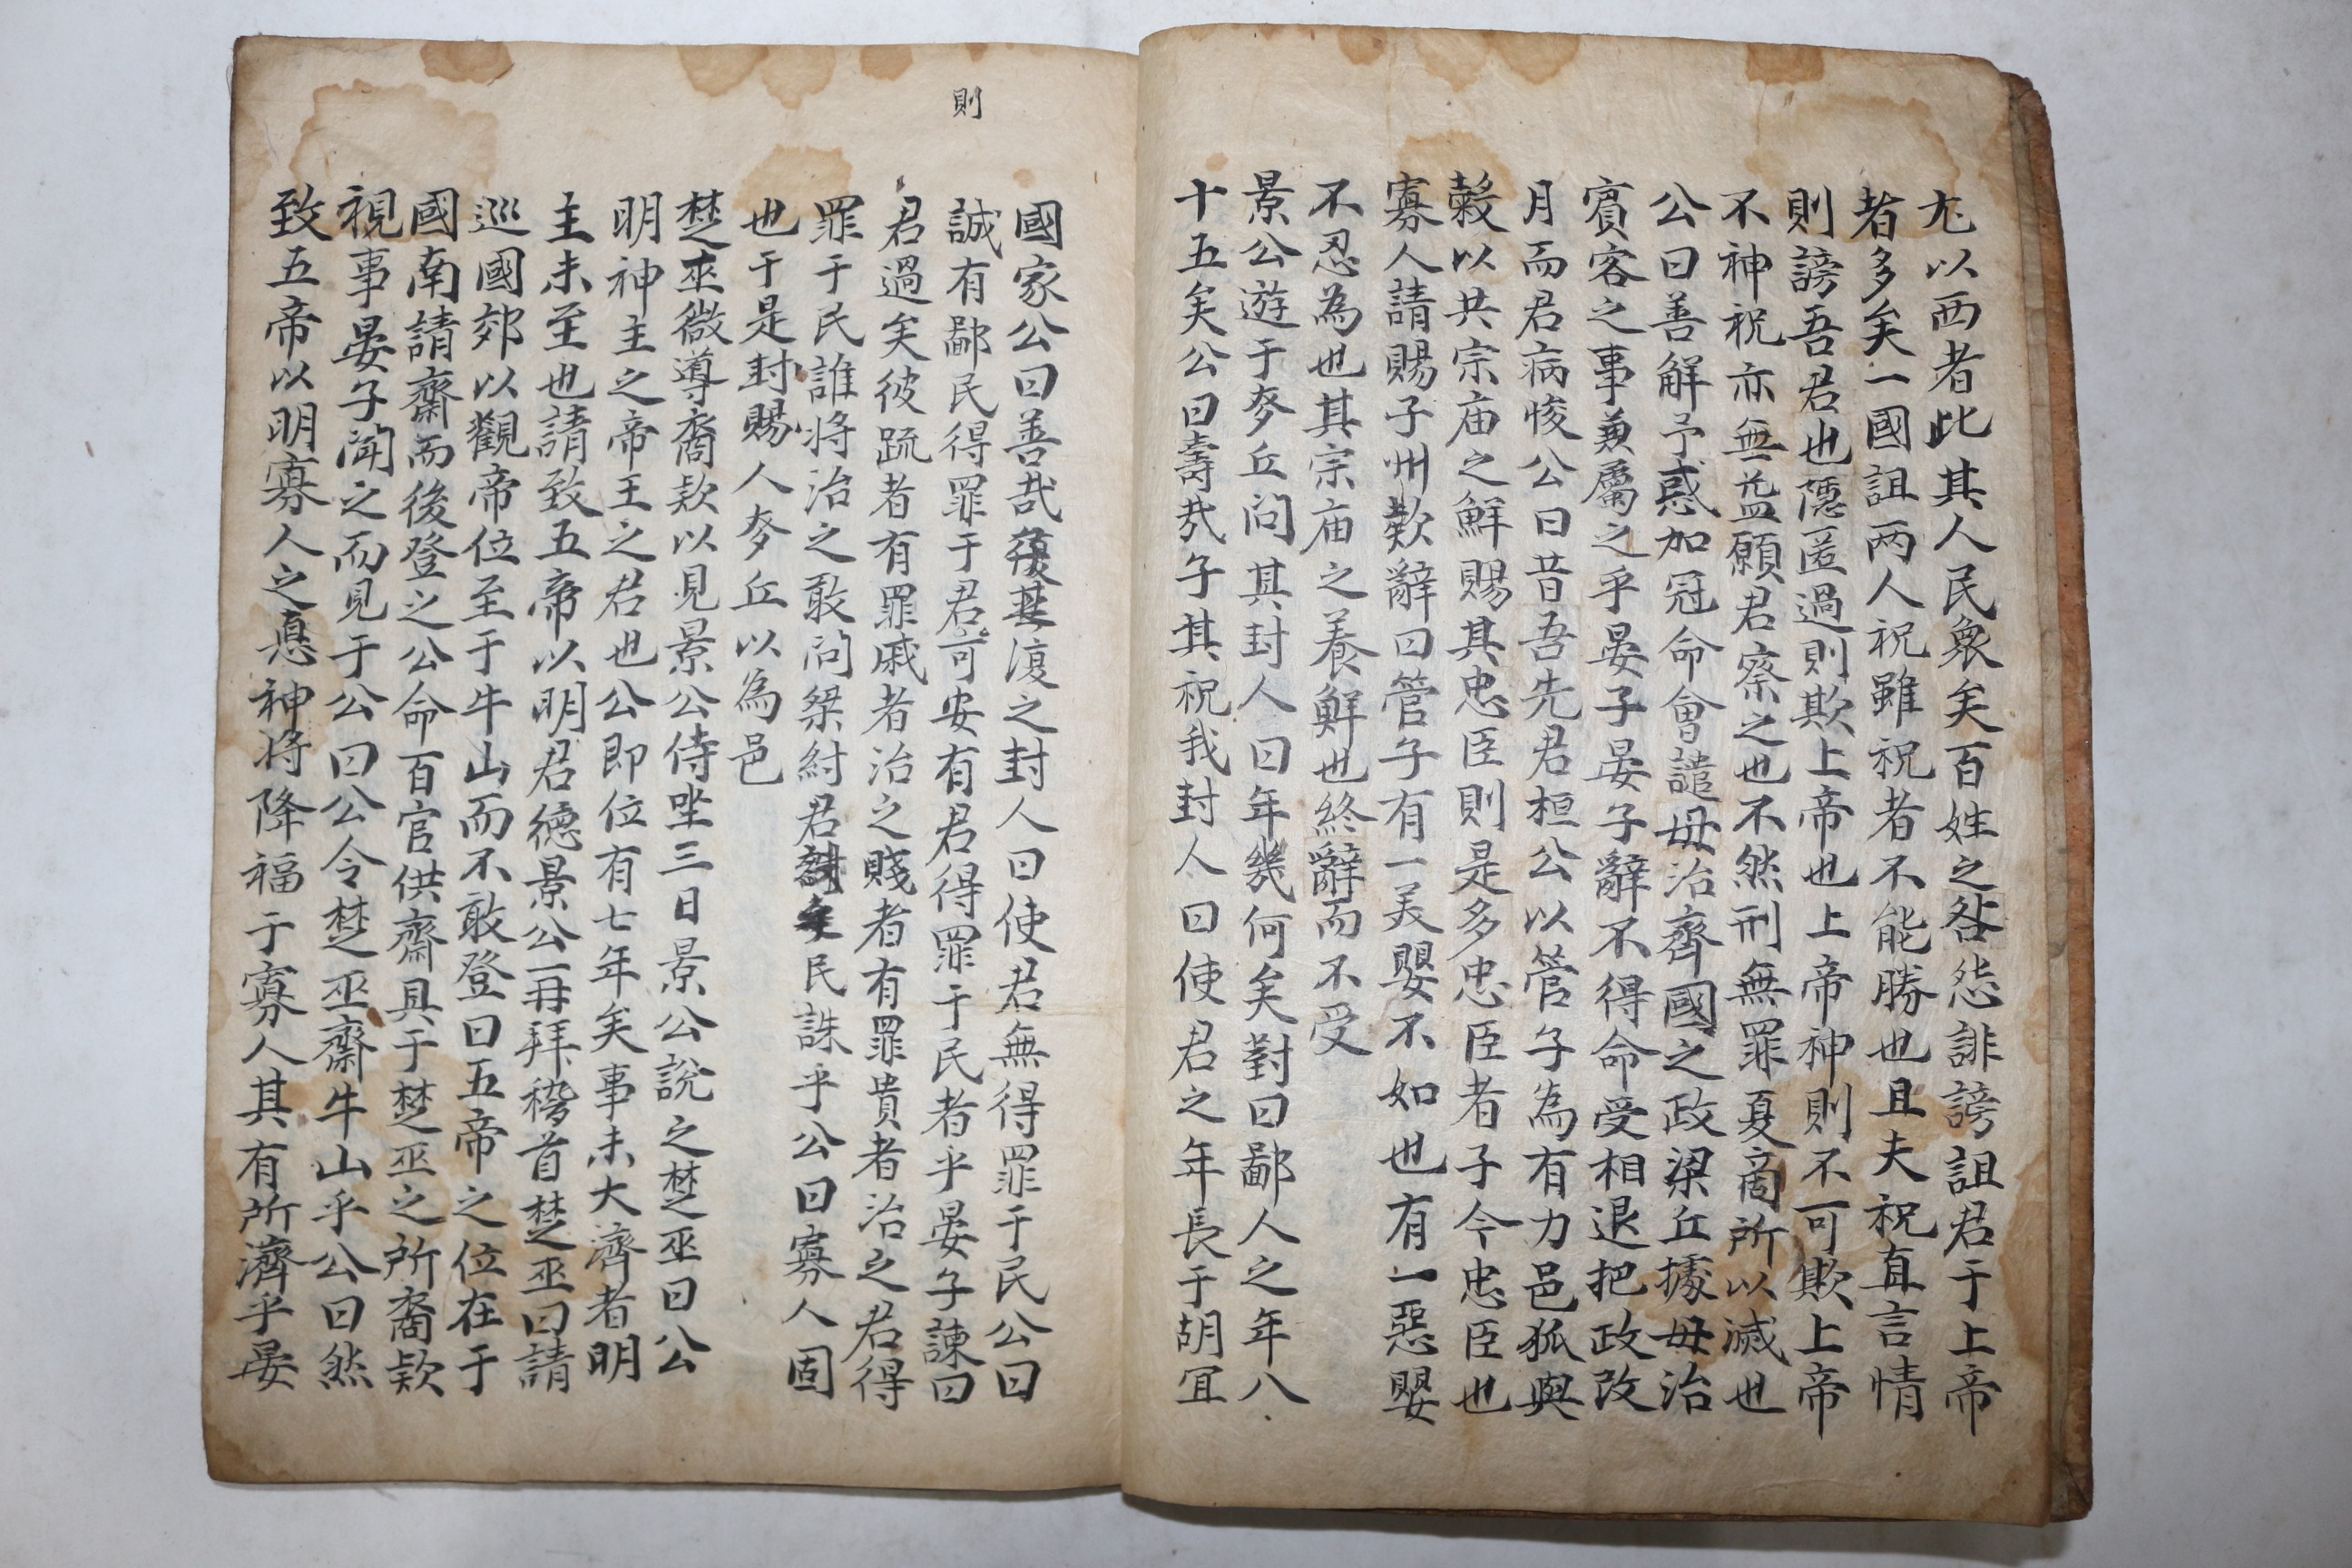 尤以西者此其人民衆矣百姓之咎怨誹謗詛君于上帝
者多矣一國詛兩人祝雖祝者不能勝也且夫祝直言情
則謗吾君也隱匿過則欺上帝也上帝神則不可欺上帝
不神祝亦無益願君察之也不然刑無罪夏商所以滅也
公曰善解予惑加冠命會譴毋治齊國之政梁丘據毋治
賓客之事兼屬之乎晏子晏子辭不得命受相退把政改
月而君病悛公曰昔吾先君桓公以管子為有力邑狐與
穀以共宗庙之鮮賜其忠臣則是多忠臣者子今忠臣也
寡人請賜子州欵辭曰管子有一美嬰不如也有一惡嬰
不忍為也其宗庙之養鮮也終辭而不受
景公遊于麥丘问其封人曰年幾何矣對曰鄙人之年八
十五矣公曰壽㢤子其祝我封人曰使君之年長于胡宜
則
國家公曰善哉復之封人曰使君無得罪于民公曰
誠有鄙民得罪于君可安有君得罪于民者乎晏子諫曰
君過矣彼疏者有罪戚者治之賤者有罪貴者治之君得
罪于民誰将治之敢问桀紂君民誅乎公曰寡人固
也于是封賜人麥丘以為邑
楚巫微導裔欵以見景公侍坐三日景公說之楚巫曰公
明神主之帝王之君也公即位有七年矣事未大濟者明
主未至也請致五帝以明君德景公再拜稽首楚巫曰請
巡國郊以觀帝位至于牛山而不敢登曰五帝之位在于
國南請齋而後登之公命百官供齋具于楚巫之所裔欵
視事晏子闻之而見于公曰公令楚巫齋牛山乎公曰然
致五帝以明寡人之悳神将降福于寡人其有所濟乎晏